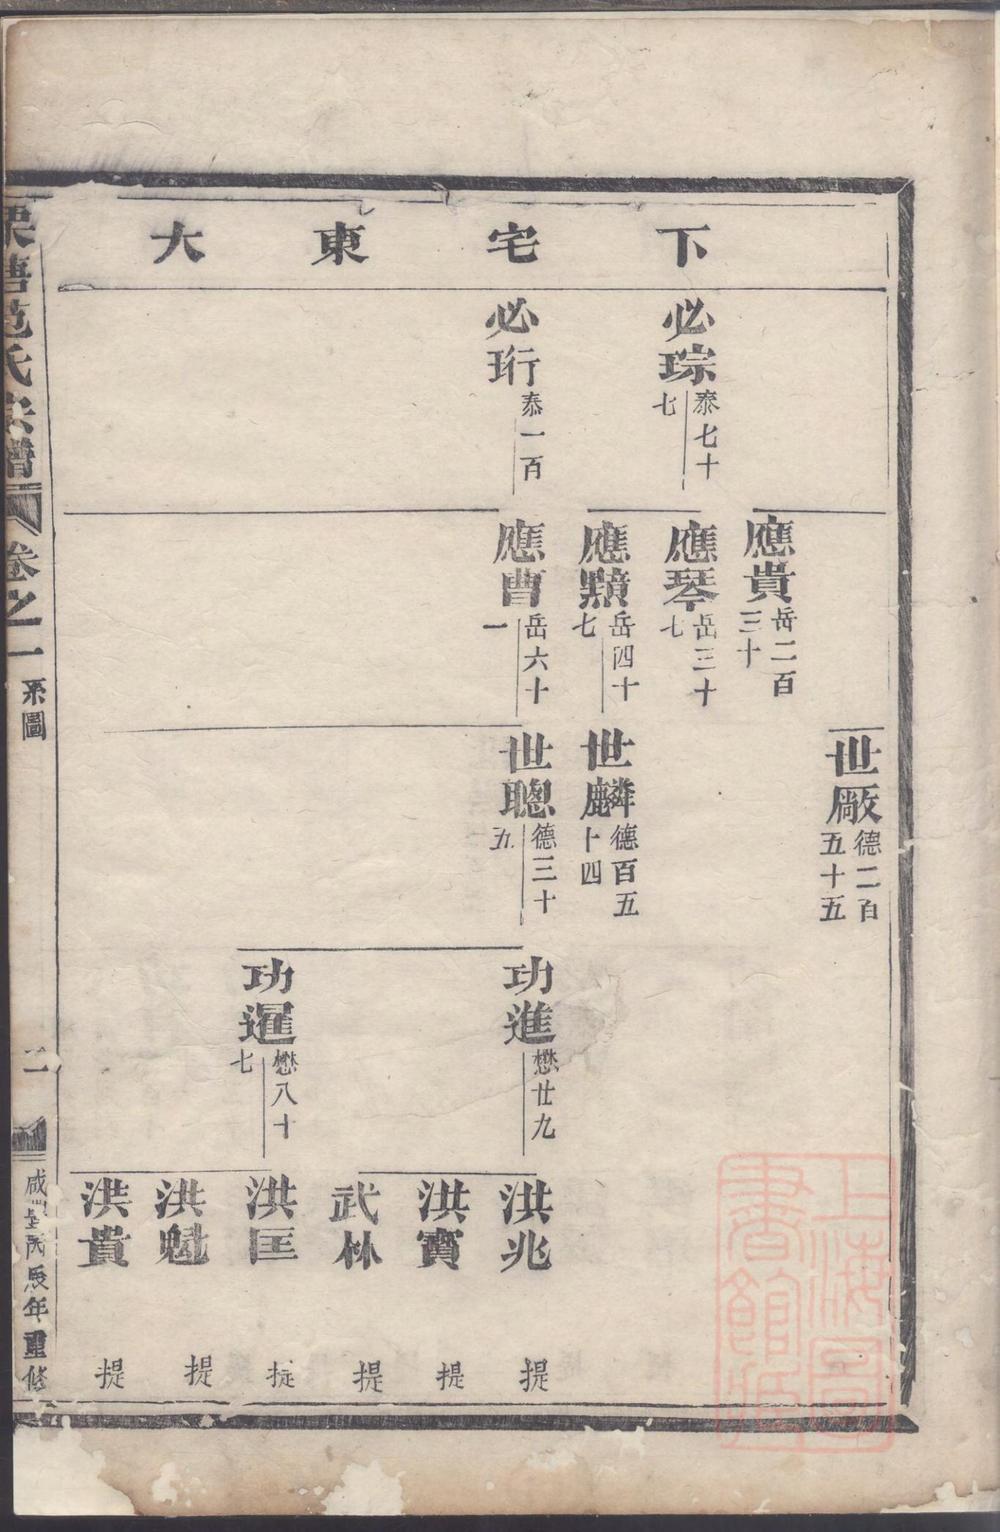 下宅東大
必琮
泰七十
七
必珩
泰一百
應貴
岳二百
三十
應琴
岳三十
七
應顯
岳四十
七
應曹
岳六十
一
世廠
德二百
五十五
世麟
德百五
十四
世聰
德三十
五
功進
懋廿九
功暹
懋八十
七
洪兆 提
洪寶 提
武林 提
洪匡 提
洪魁 提
洪貴 提
栗塘范氏宗譜
卷之一
系圖
二
咸豐丙辰年重修
上海圖
書館藏